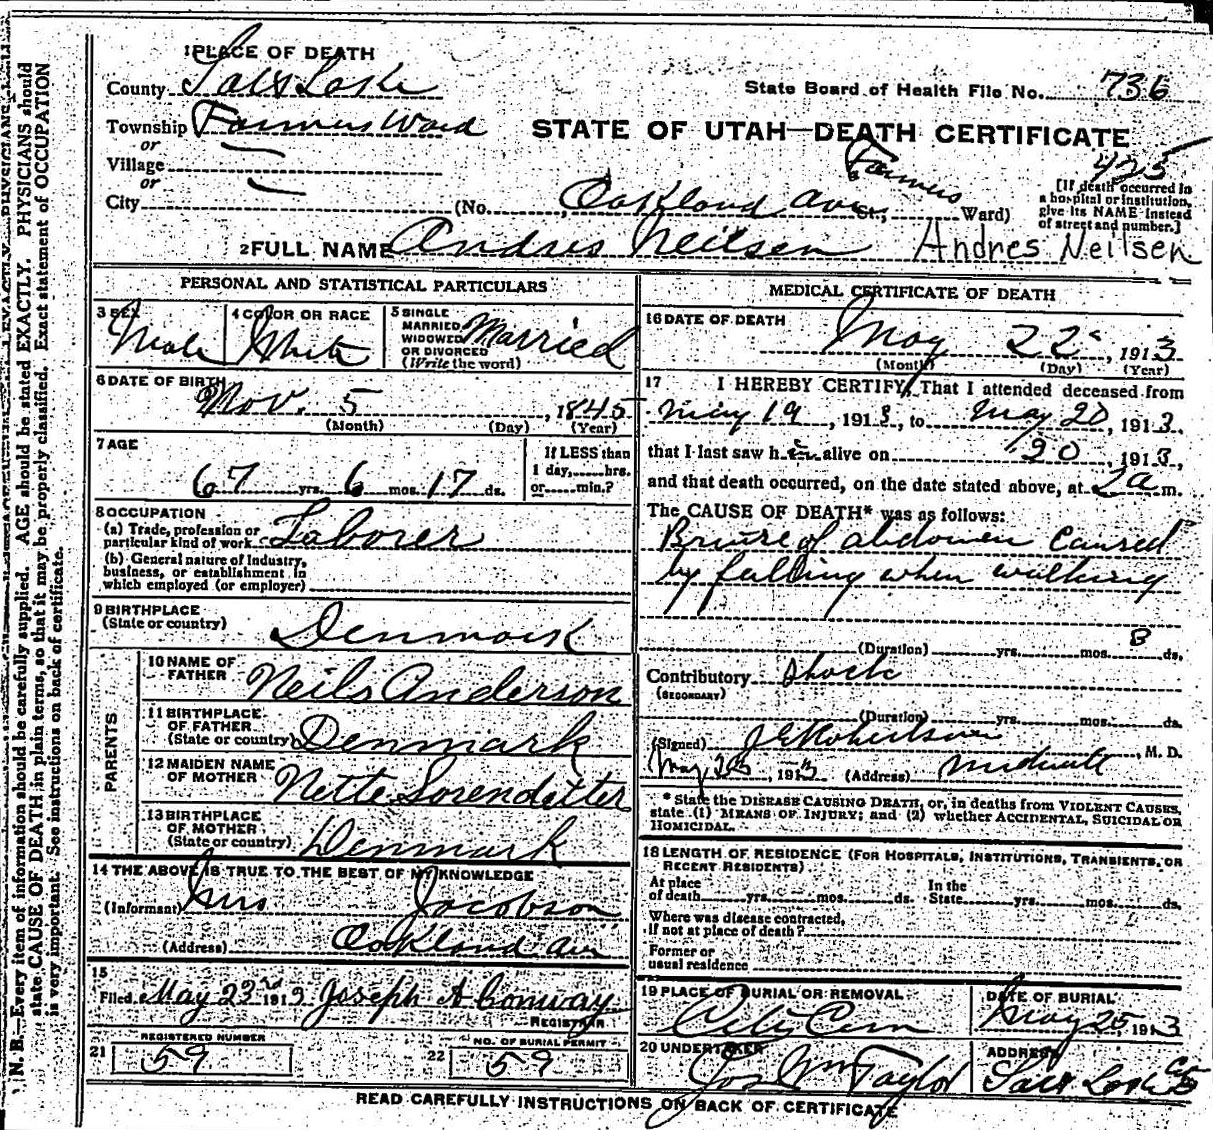 1 PLACE OF DEATH
County Salt Lake
State Board of Health File No. 736
Township Farmers Ward
STATE OF UTAH—DEATH CERTIFICATE
or
Village —
or
City —
425
(No. , Oakland Ave St.; Farmers Ward)
[If death occurred in
a hospital or institution,
give its NAME instead
of street and number.]
2 FULL NAME Andres Neilsen Andres Neilsen
PERSONAL AND STATISTICAL PARTICULARS
3 SEX
Male
4 COLOR OR RACE
White
5 SINGLE
MARRIED
WIDOWED
OR DIVORCED
(Write the word)
Married
6 DATE OF BIRTH
Nov. 5, 1845
(Month) (Day) (Year)
7 AGE
67 yrs. 6 mos. 17 ds.
If LESS than
1 day, hrs.
or min.?
8 OCCUPATION
(a) Trade, profession or
particular kind of work Laborer
(b) General nature of industry,
business, or establishment in
which employed (or employer)
9 BIRTHPLACE
(State or country)
Denmark
PARENTS
10 NAME OF
FATHER
Neils Anderson
11 BIRTHPLACE
OF FATHER
(State or country)
Denmark
12 MAIDEN NAME
OF MOTHER
Nette Sorendatter
13 BIRTHPLACE
OF MOTHER
(State or country)
Denmark
14 THE ABOVE IS TRUE TO THE BEST OF MY KNOWLEDGE
(Informant) Mrs Jacobson
(Address) Oakland Ave
15
Filed May 23rd 1913 Joseph A Conway
REGISTRAR
REGISTERED NUMBER
21 59
NO. OF BURIAL PERMIT
22 59
MEDICAL CERTIFICATE OF DEATH
16 DATE OF DEATH
May 22, 1913
(Month) (Day) (Year)
17 I HEREBY CERTIFY, That I attended deceased from
May 19, 1913, to May 20, 1913,
that I last saw him alive on 20, 1913,
and that death occurred, on the date stated above, at 2 a m.
The CAUSE OF DEATH* was as follows:
Bruise of abdomen caused
by falling when walking
8
(Duration) yrs. mos. ds.
Contributory Shock
(SECONDARY)
(Duration) yrs. mos. ds.
(Signed) J E Robertson, M. D.
May, 1913 (Address) Midvale
* State the DISEASE CAUSING DEATH, or, in deaths from VIOLENT CAUSES,
state (1) MEANS OF INJURY; and (2) whether ACCIDENTAL, SUICIDAL OR
HOMICIDAL.
18 LENGTH OF RESIDENCE (FOR HOSPITALS, INSTITUTIONS, TRANSIENTS, OR
RECENT RESIDENTS)
At place
of death yrs. mos. ds.
In the
State yrs. mos. ds.
Where was disease contracted,
if not at place of death?
Former or
usual residence
19 PLACE OF BURIAL OR REMOVAL
City Cem
DATE OF BURIAL
May 25 1913
20 UNDERTAKER
Jos Wm Taylor
ADDRESS
Salt Lake
READ CAREFULLY INSTRUCTIONS ON BACK OF CERTIFICATE
N. B.—Every item of information should be carefully supplied. AGE should be stated EXACTLY. PHYSICIANS should
state CAUSE OF DEATH in plain terms, so that it may be properly classified. Exact statement of OCCUPATION
is very important. See instructions on back of certificate.